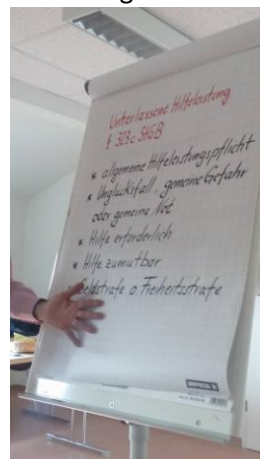 Unterlassene Hilfeleistung
§ 323c StGB
* allgemeine Hilfeleistungspflicht
* Unglücksfall, gemeine Gefahr
oder gemeine Not
* Hilfe erforderlich
* Hilfe zumutbar
Geldstrafe o. Freiheitsstrafe